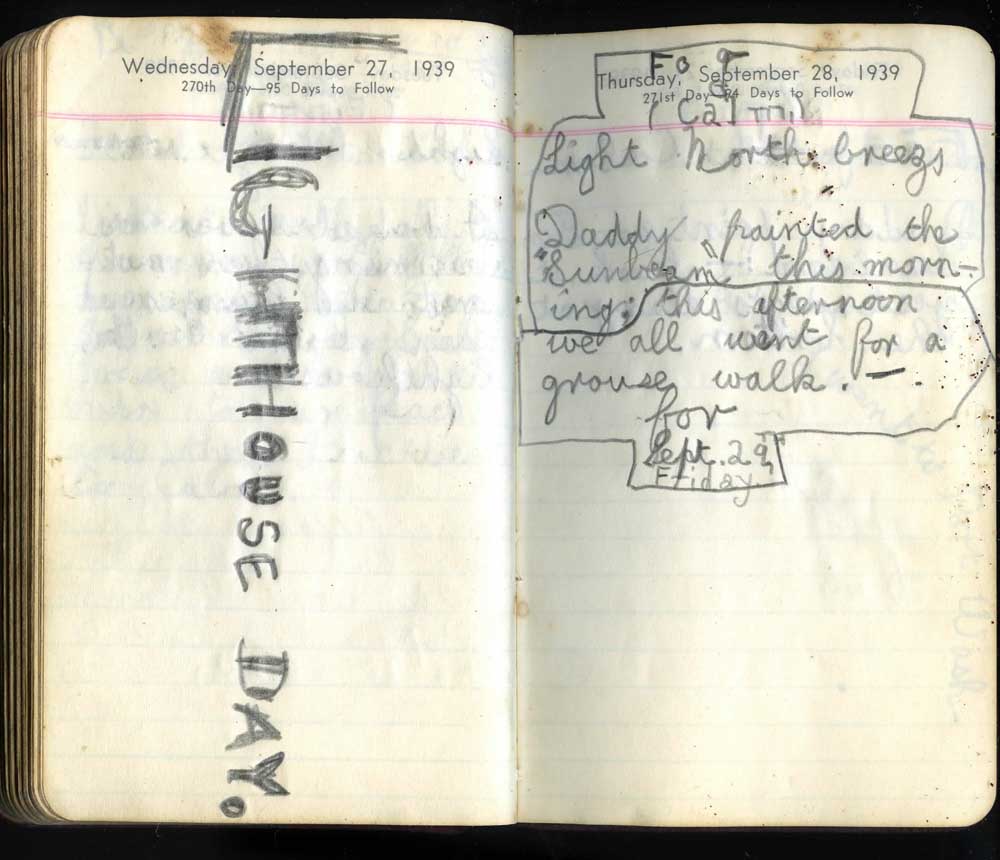 Wednesday, September 27, 1939
270th Day—95 Days to Follow
LIGHTHOUSE DAY.
Fog
Thursday, September 28, 1939
271st Day—94 Days to Follow
(Calm)
Light North. breezs
Daddy painted the
"Sunbeam" this morn-
ing: this afternoon
we all went for a
grouse walk. —.
for
Sept. 29,
Friday.